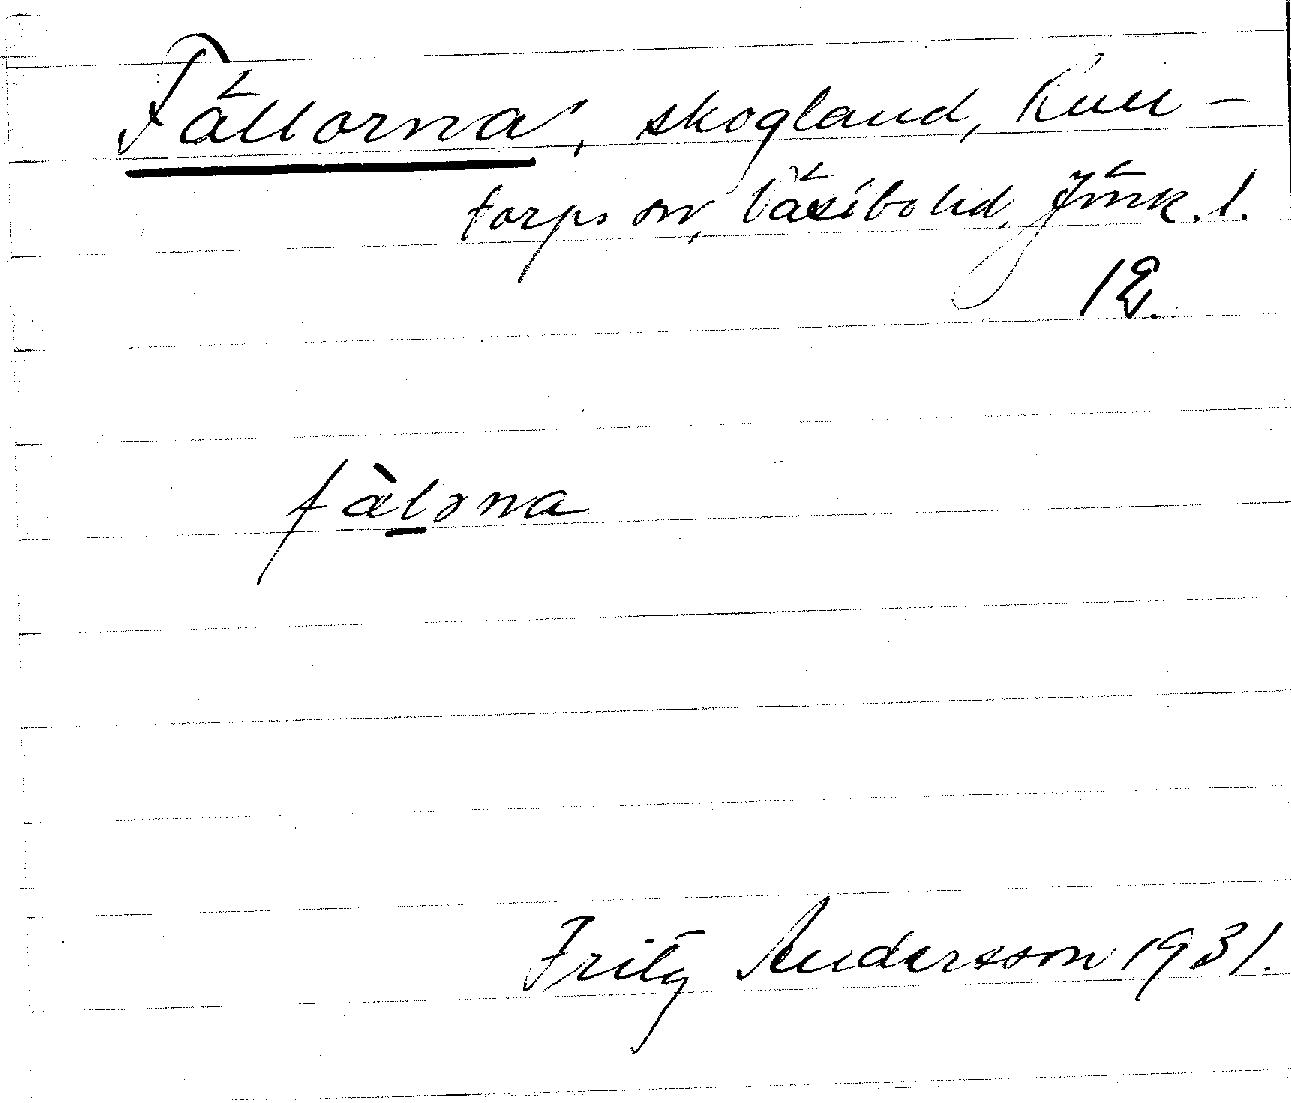 Fällorna, skogland, Kull-
torps sn, Västbo hd, Jönk. l.
12.
fàl̠ɔna
Fritz Andersson 1931.